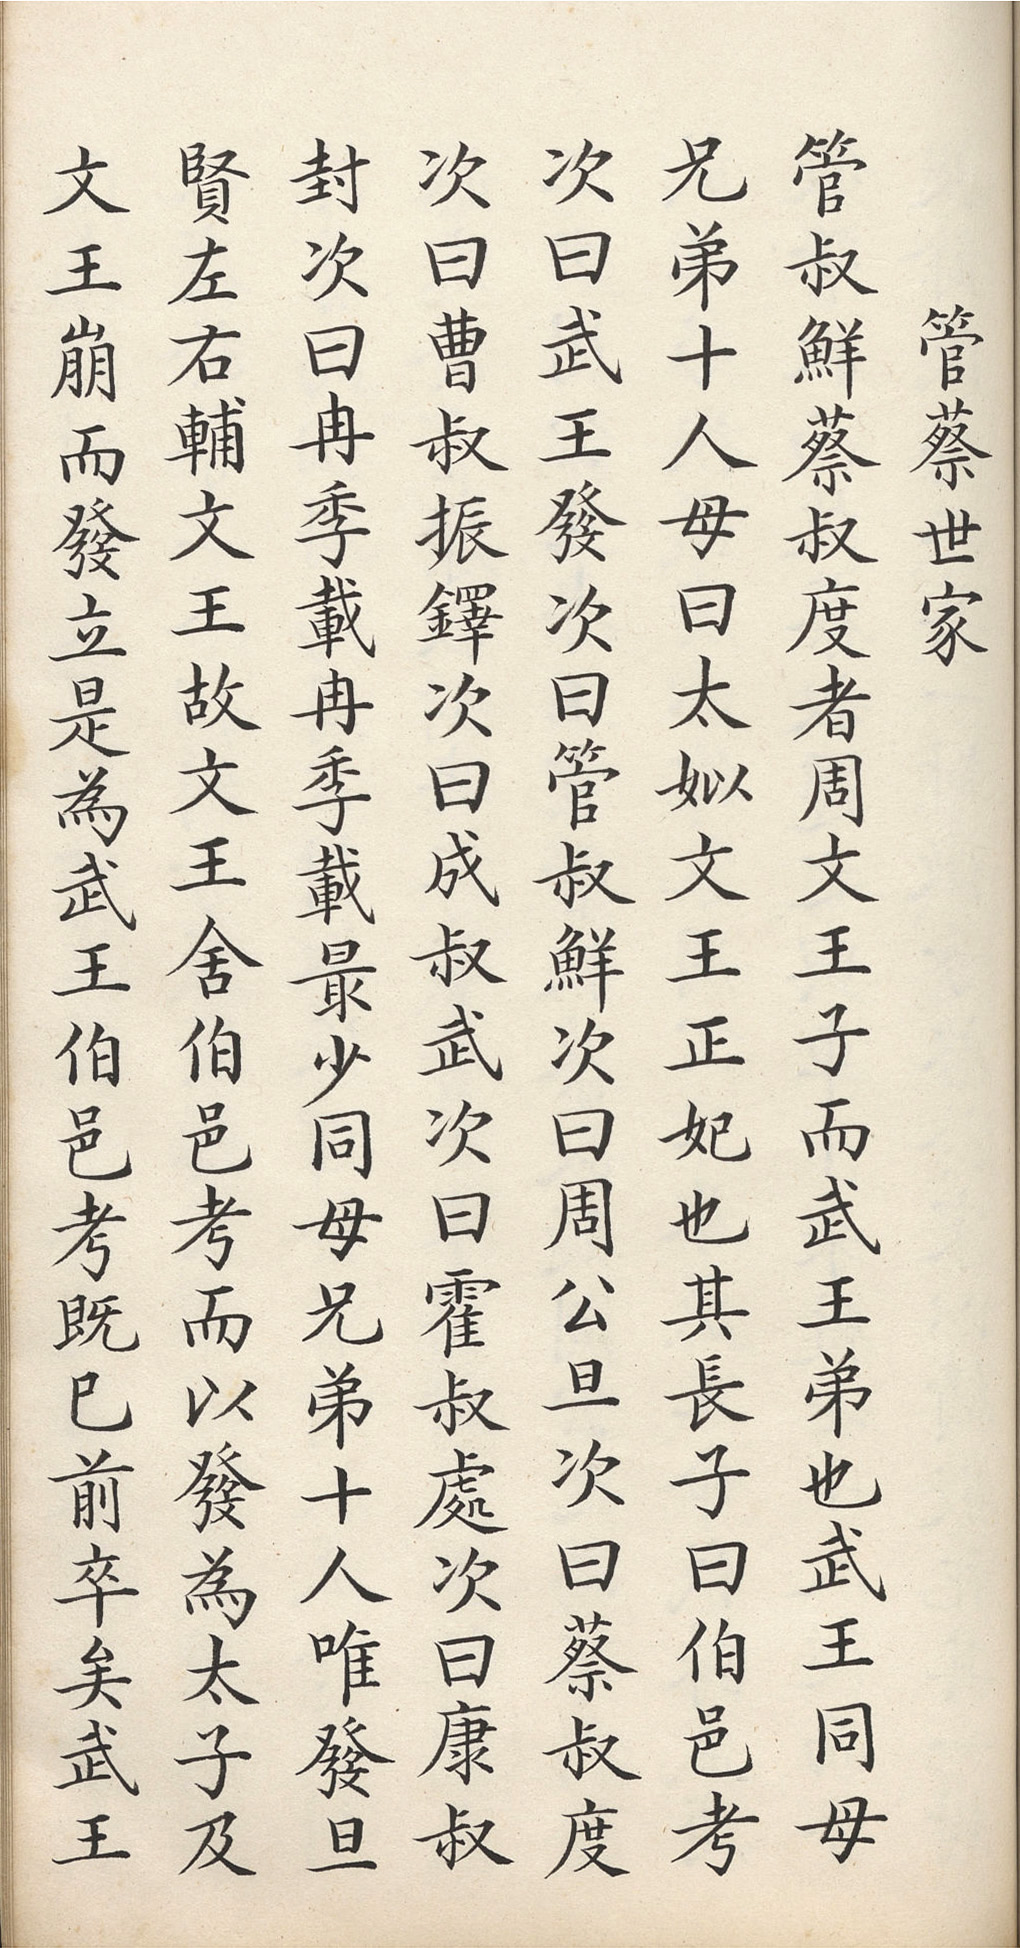 管蔡世家
管叔鮮蔡叔度者周文王子而武王弟也武王同母
兄弟十人母曰太姒文王正妃也其長子曰伯邑考
次曰武王發次曰管叔鮮次曰周公旦次曰蔡叔度
次曰曹叔振鐸次曰成叔武次曰霍叔處次曰康叔
封次曰冉季載冉季載最少同母兄弟十人唯發旦
賢左右輔文王故文王舍伯邑考而以發為太子及
文王崩而發立是為武王伯邑考既已前卒矣武王